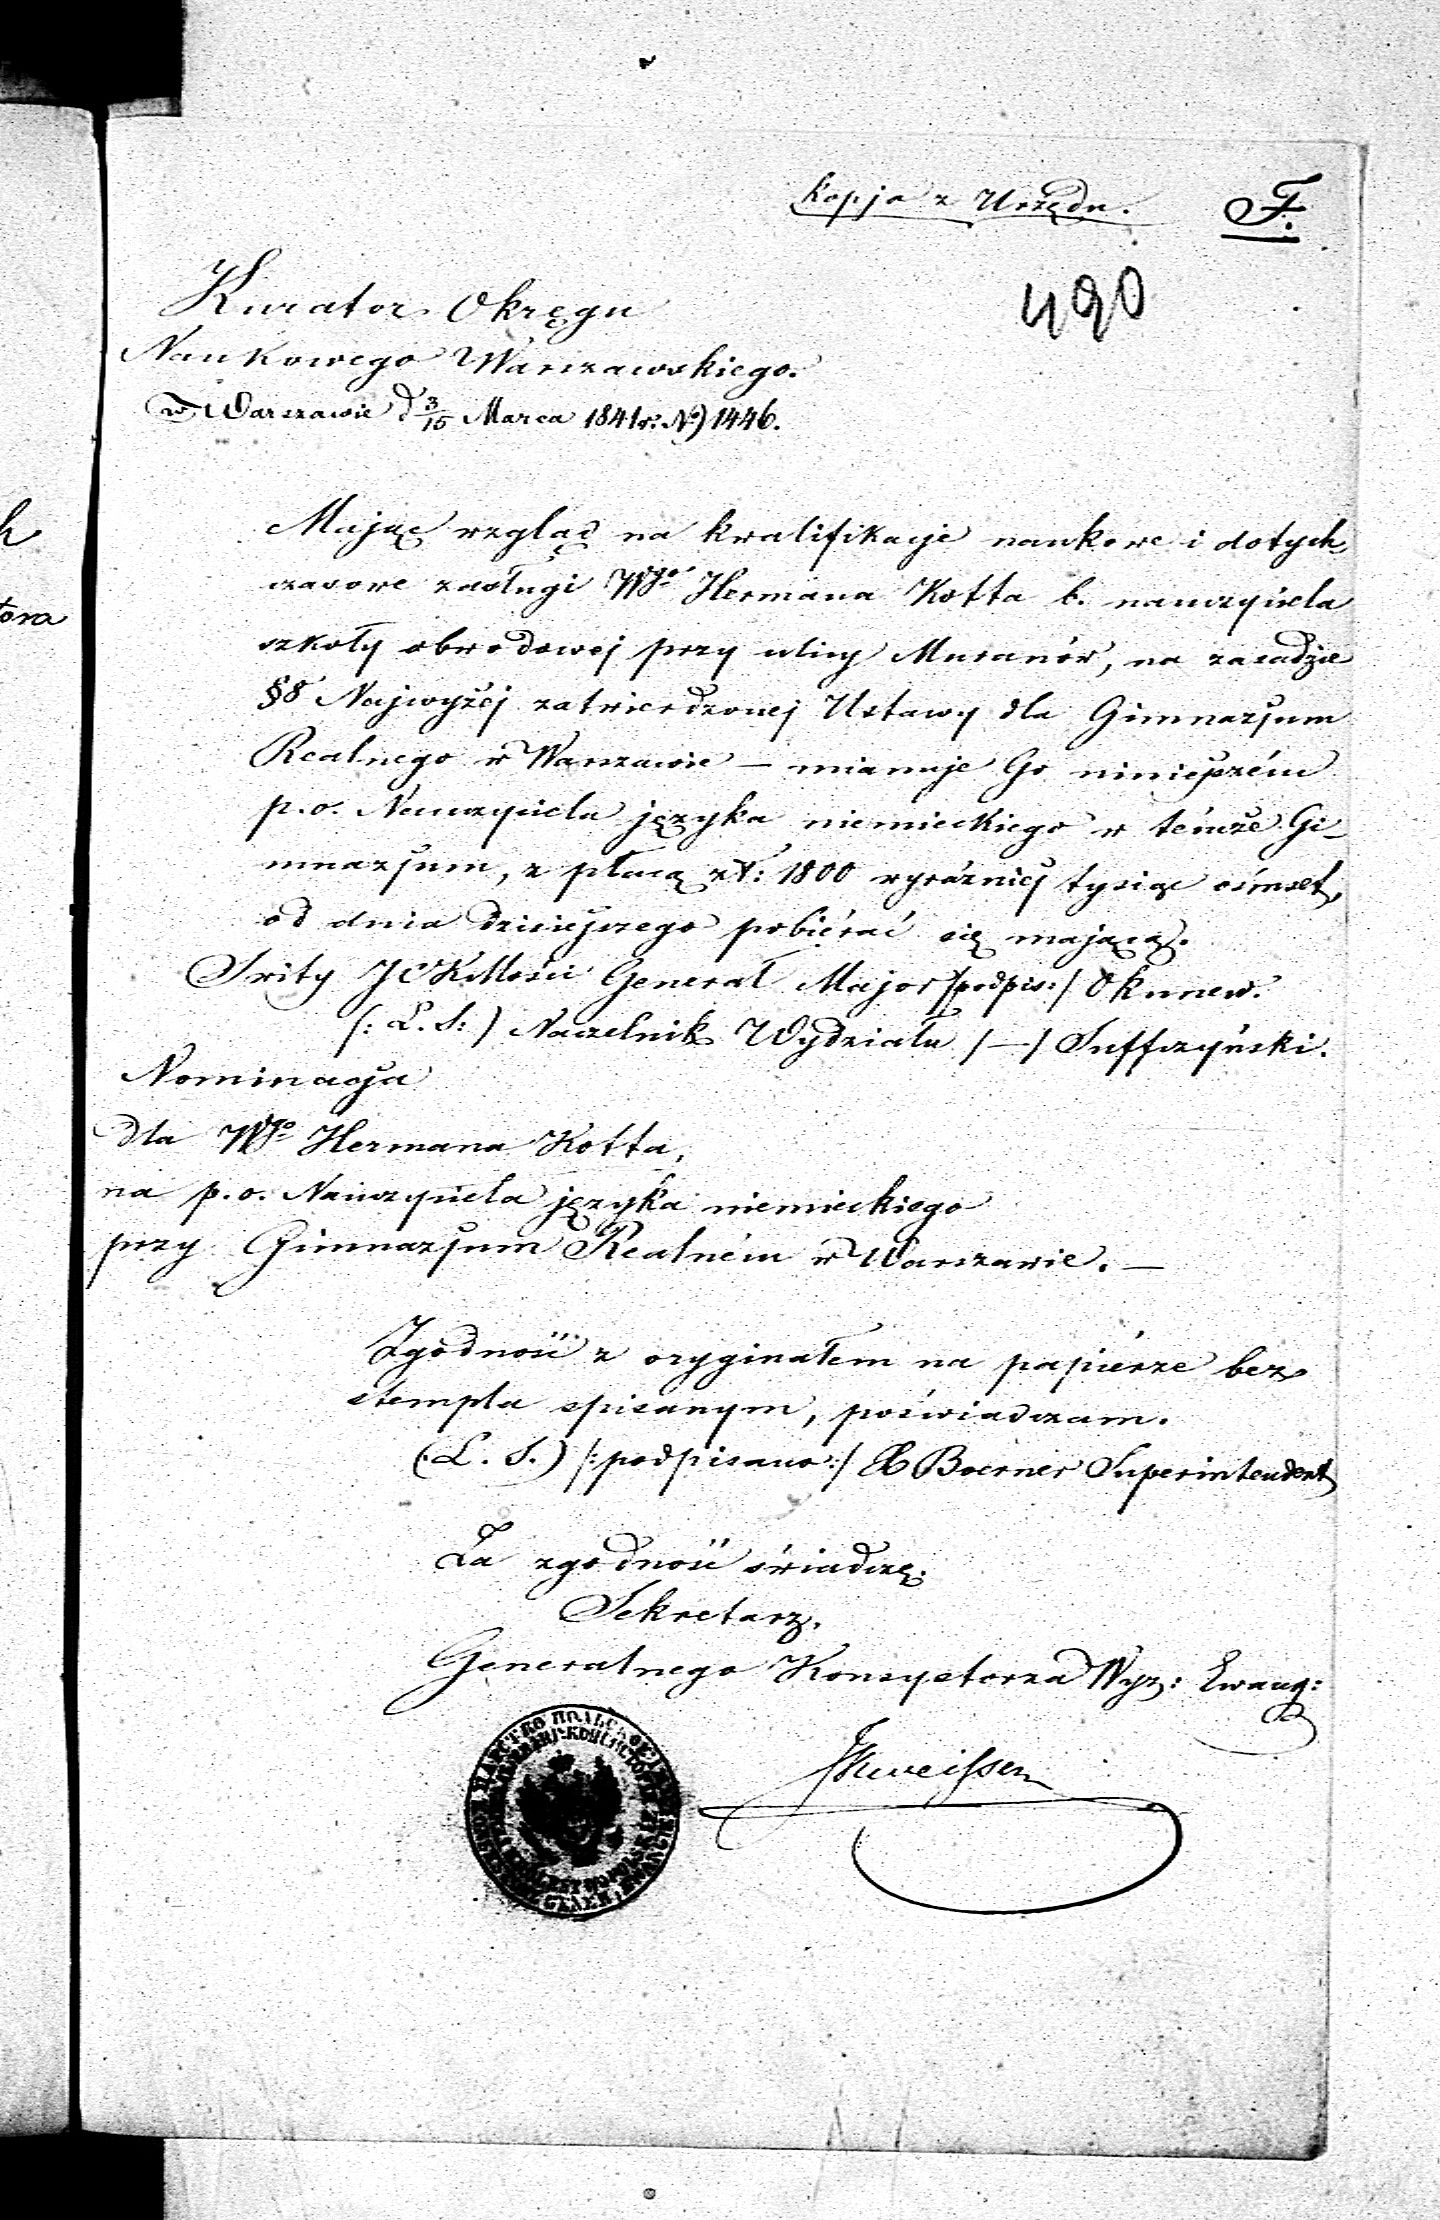 Kopja z Urzędu. F.
490
Kurator Okręgu
Naukowego Warszawskiego.
w Warszawie d 3/15 Marca 1841 r: No) 1446.
Mając wzgląd na kwalifikacje naukowe i dotych
czasowe zasługi Wgo Hermana Kotta b. nauczyciela
szkoły obwodowej przy ulicy Muranów, na zasadzie
§8 Najwyżej zatwierdzonej Ustawy dla Gimnazjum
Realnego w Warszawie — mianuje Go niniejszém
p.o. Nauczyciela języka niemieckiego w témże Gi-
mnazjum, z płacą zł: 1800 wyraźniej tysiąc ośmset,
od dnia dzisiejszego pobiérać się mającą.
Świty JCKMości Generał Major /podpis:/ Okunew.
(: L. S: ) Naczelnik Wydziału /—/ Suffczyński.
Nominacja
dla Wgo Hermana Kotta,
na p.o. Nauczyciela języka niemieckiego
przy Gimnazjum Realném w Warszawie. —
Zgodność z oryginałem na papiérze bez
stempla spisanym, poświadczam.
(L. S.) /:podpisano:/ Boerner Superintendent
Za zgodność świadczę.
Sekretarz.
Generalnego Konsystorza Wyz: Ewang:
h
tora